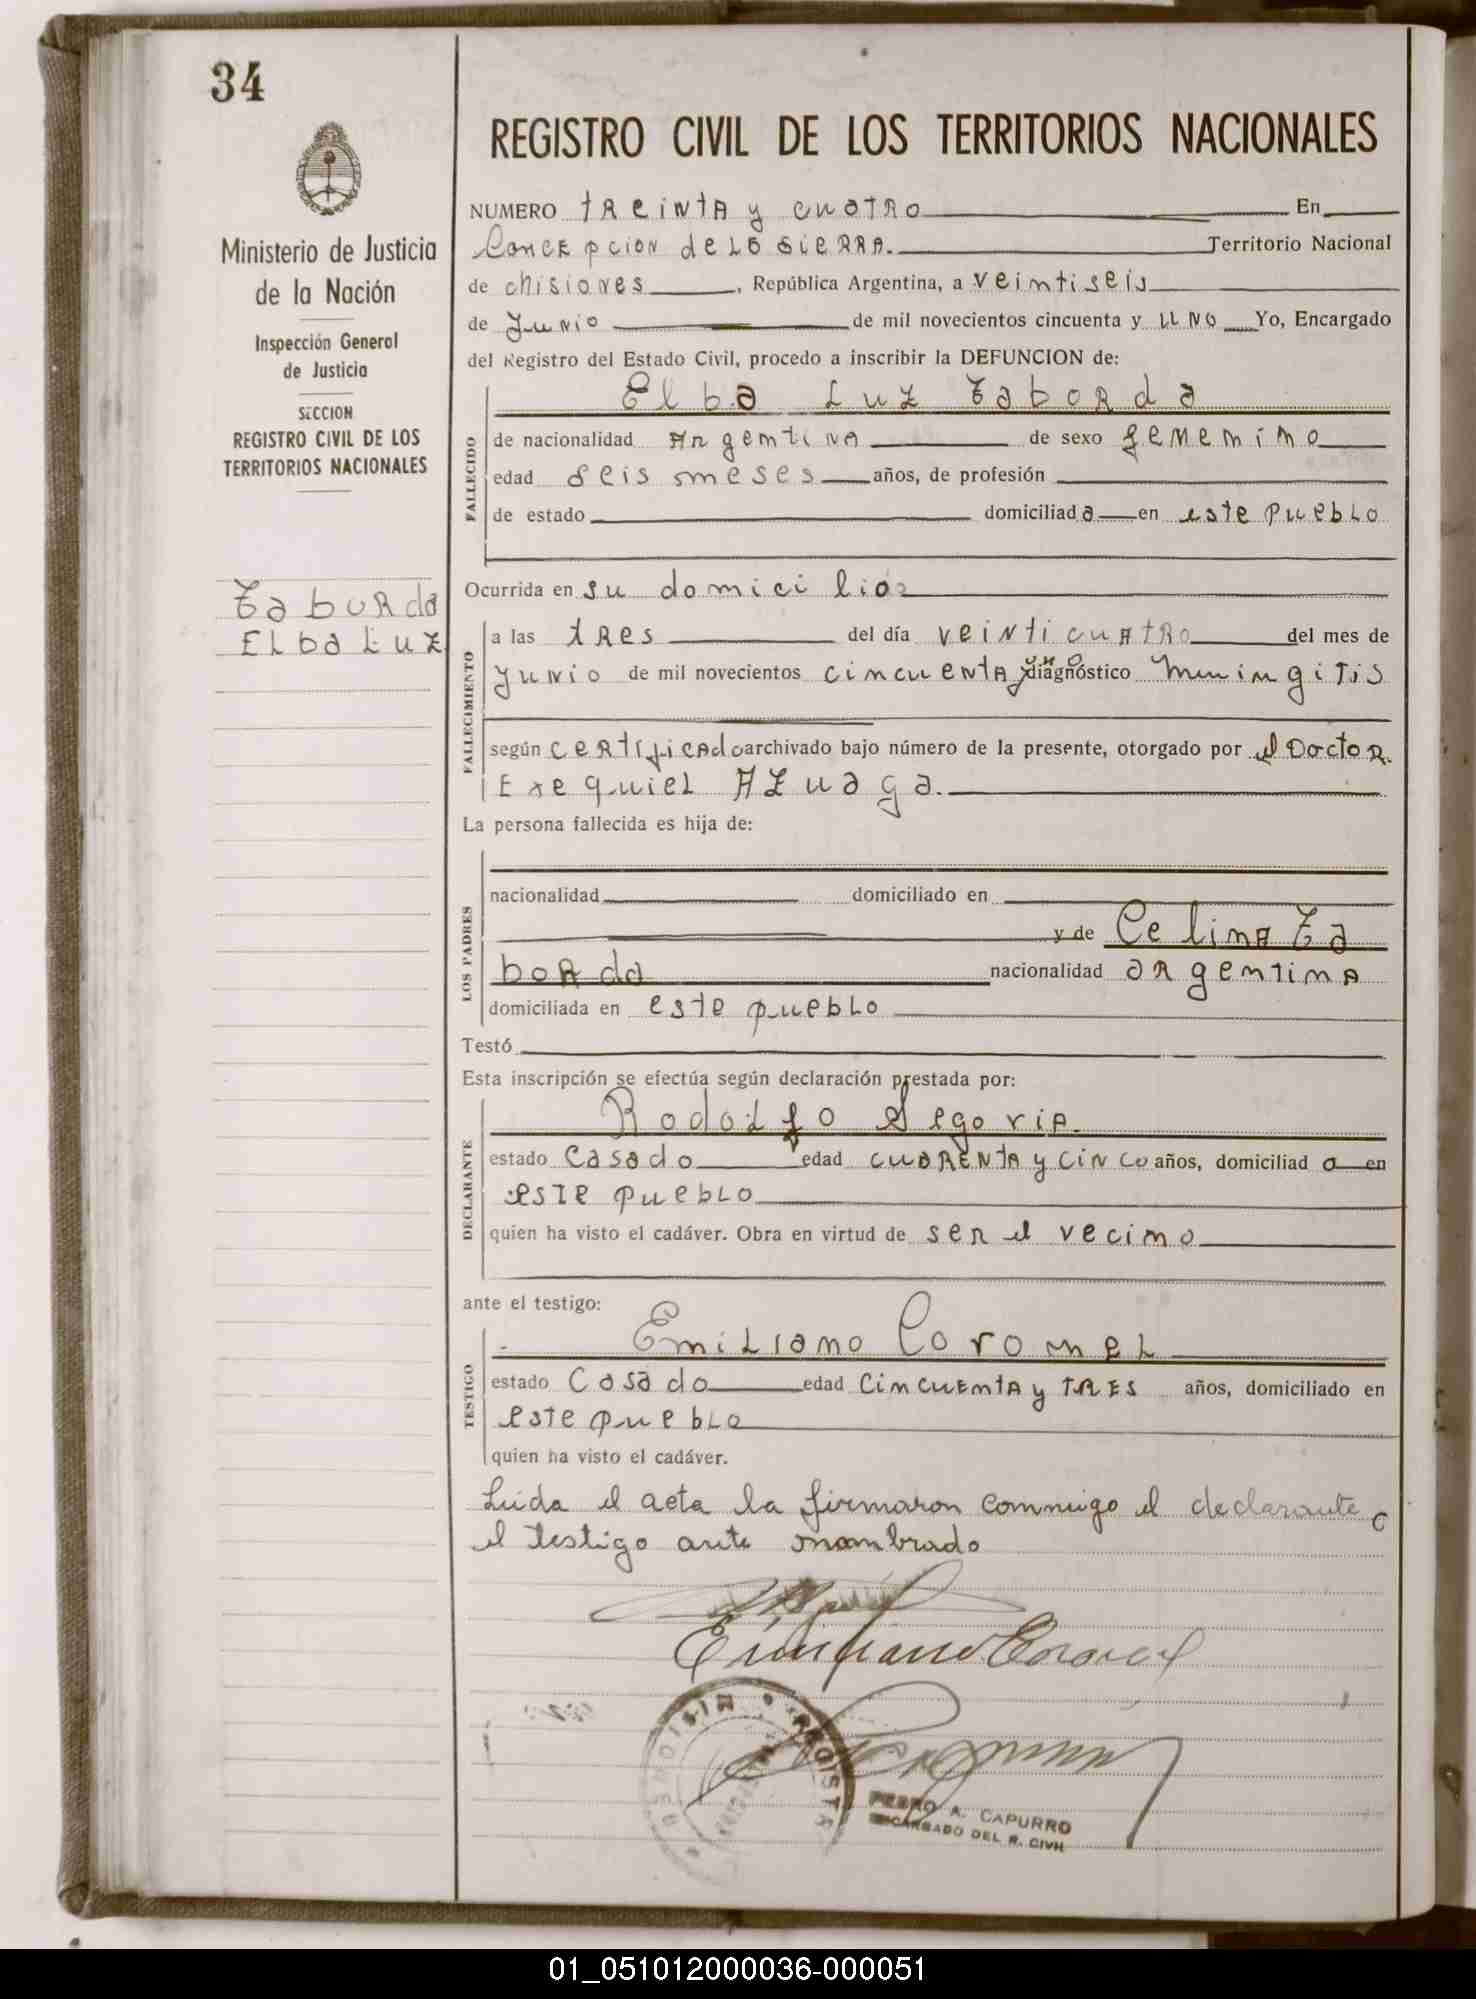 34
Ministerio de Justicia
de la Nación
Inspección General
de Justicia
SECCION
REGISTRO CIVIL DE LOS
TERRITORIOS NACIONALES
Taborda
Elba Luz
REGISTRO CIVIL DE LOS TERRITORIOS NACIONALES
NUMERO treinta y cuatro En
Concepcion de la Sierra. Territorio Nacional
de Misiones, República Argentina, a veintiseis
de Junio de mil novecientos cincuenta y uno Yo, Encargado
del Registro del Estado Civil, procedo a inscribir la DEFUNCION de:
Elba Luz Taborda
FALLECIDO
de nacionalidad Argentina de sexo femenino
edad seis meses años, de profesión
de estado domiciliada en este pueblo
Ocurrida en su domicilio
FALLECIMIENTO
a las tres del día veinticuatro del mes de
Junio de mil novecientos cincuenta y uno diagnóstico Miningitis
según certificado archivado bajo número de la presente, otorgado por el Doctor
Exequiel Azuaga.
La persona fallecida es hija de:
LOS PADRES
nacionalidad domiciliado en
y de Celina Ta
borda nacionalidad argentina
domiciliada en este pueblo
Testó
Esta inscripción se efectúa según declaración prestada por:
Rodolfo Segovia.
DECLARANTE
estado Casado edad cuarenta y cinco años, domiciliado en
este pueblo
quien ha visto el cadáver. Obra en virtud de ser el vecino
ante el testigo:
Emiliano Coronel
TESTIGO
estado Casado edad cincuenta y tres años, domiciliado en
este pueblo
quien ha visto el cadáver.
Leida el acta la firmaron conmigo el declarante e
el testigo ante nombrado
Emiliano Coronel
MISIONES
PEDRO A. CAPURRO
ENCARGADO DEL R. CIVIL
01_051012000036-000051